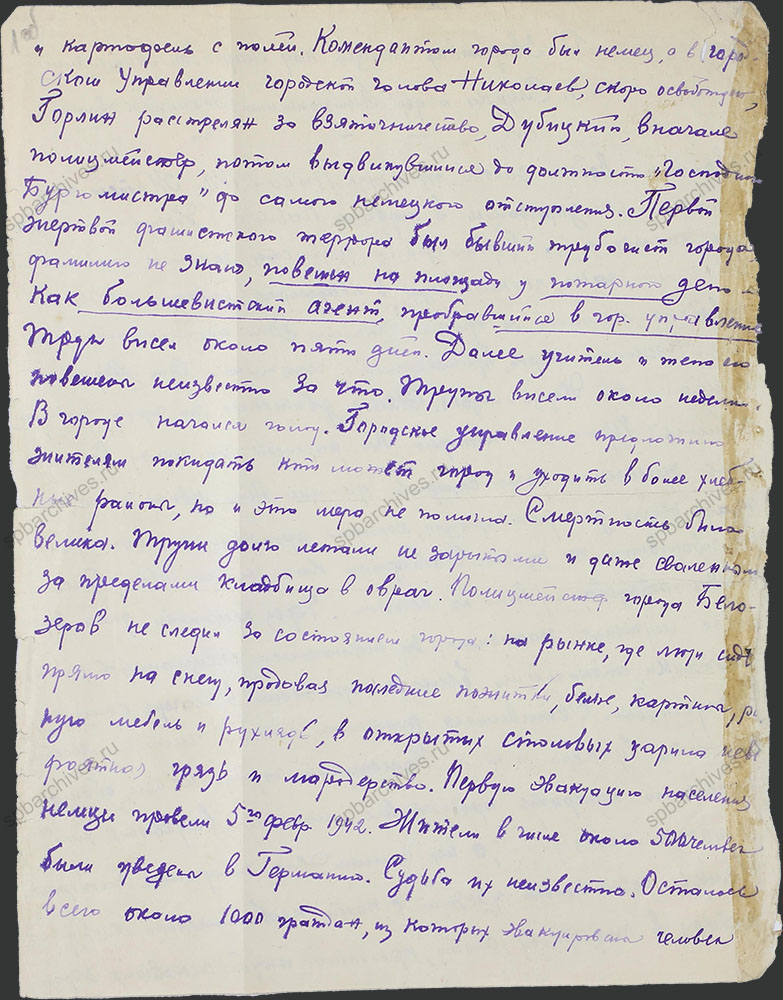 и картофель с полей. Комендантом города был немец, а в город-
ском Управлении городской голова Николаев, скоро освобожден,
Горлин расстрелян за взяточничество, Дубицкий, вначале
полицмейстер, потом выдвинувшийся до должности "Господина
Бургомистра" до самого немецкого отступления. Первой
жертвой фашистского террора был бывший трубочист города
фамилию не знаю, повешен на площади у пожарного депо
Как большевистский агент, пробравшийся в гор. управление
Труп висел около пяти дней. Далее учитель и жена его
повешены неизвестно за что. Трупы висели около недели.
В городе начался голод. Городское управление предложило
жителям покидать кто может город и уходить в более хлеб-
ные районы, но и эта мера не помогла. Смертность была
велика. Трупы долго лежали не зарытыми и даже сваленными
за пределами кладбища в овраг. Полицмейстер города Бело-
зеров не следил за состоянием города: на рынке, где люди сидя
прямо на снегу, продавая последние пожитки, белье, картины,
ную мебель и рухлядь, в открытых столовых царила неве
роятная грязь и мародерство. Первую эвакуацию населения
немцы провели 5го февр 1942. Жители в числе около человек
были уведены в Германию. Судьба их неизвестна. Осталось
всего около 1000 граждан, из которых эвакуированы человек
1 об
spbarchives.ru
spbarchives.ru
spbarchives.ru
spbarchives.ru
spbarchives.ru
spbarchives.ru
spbarchives.ru
spbarchives.ru
spbarchives.ru